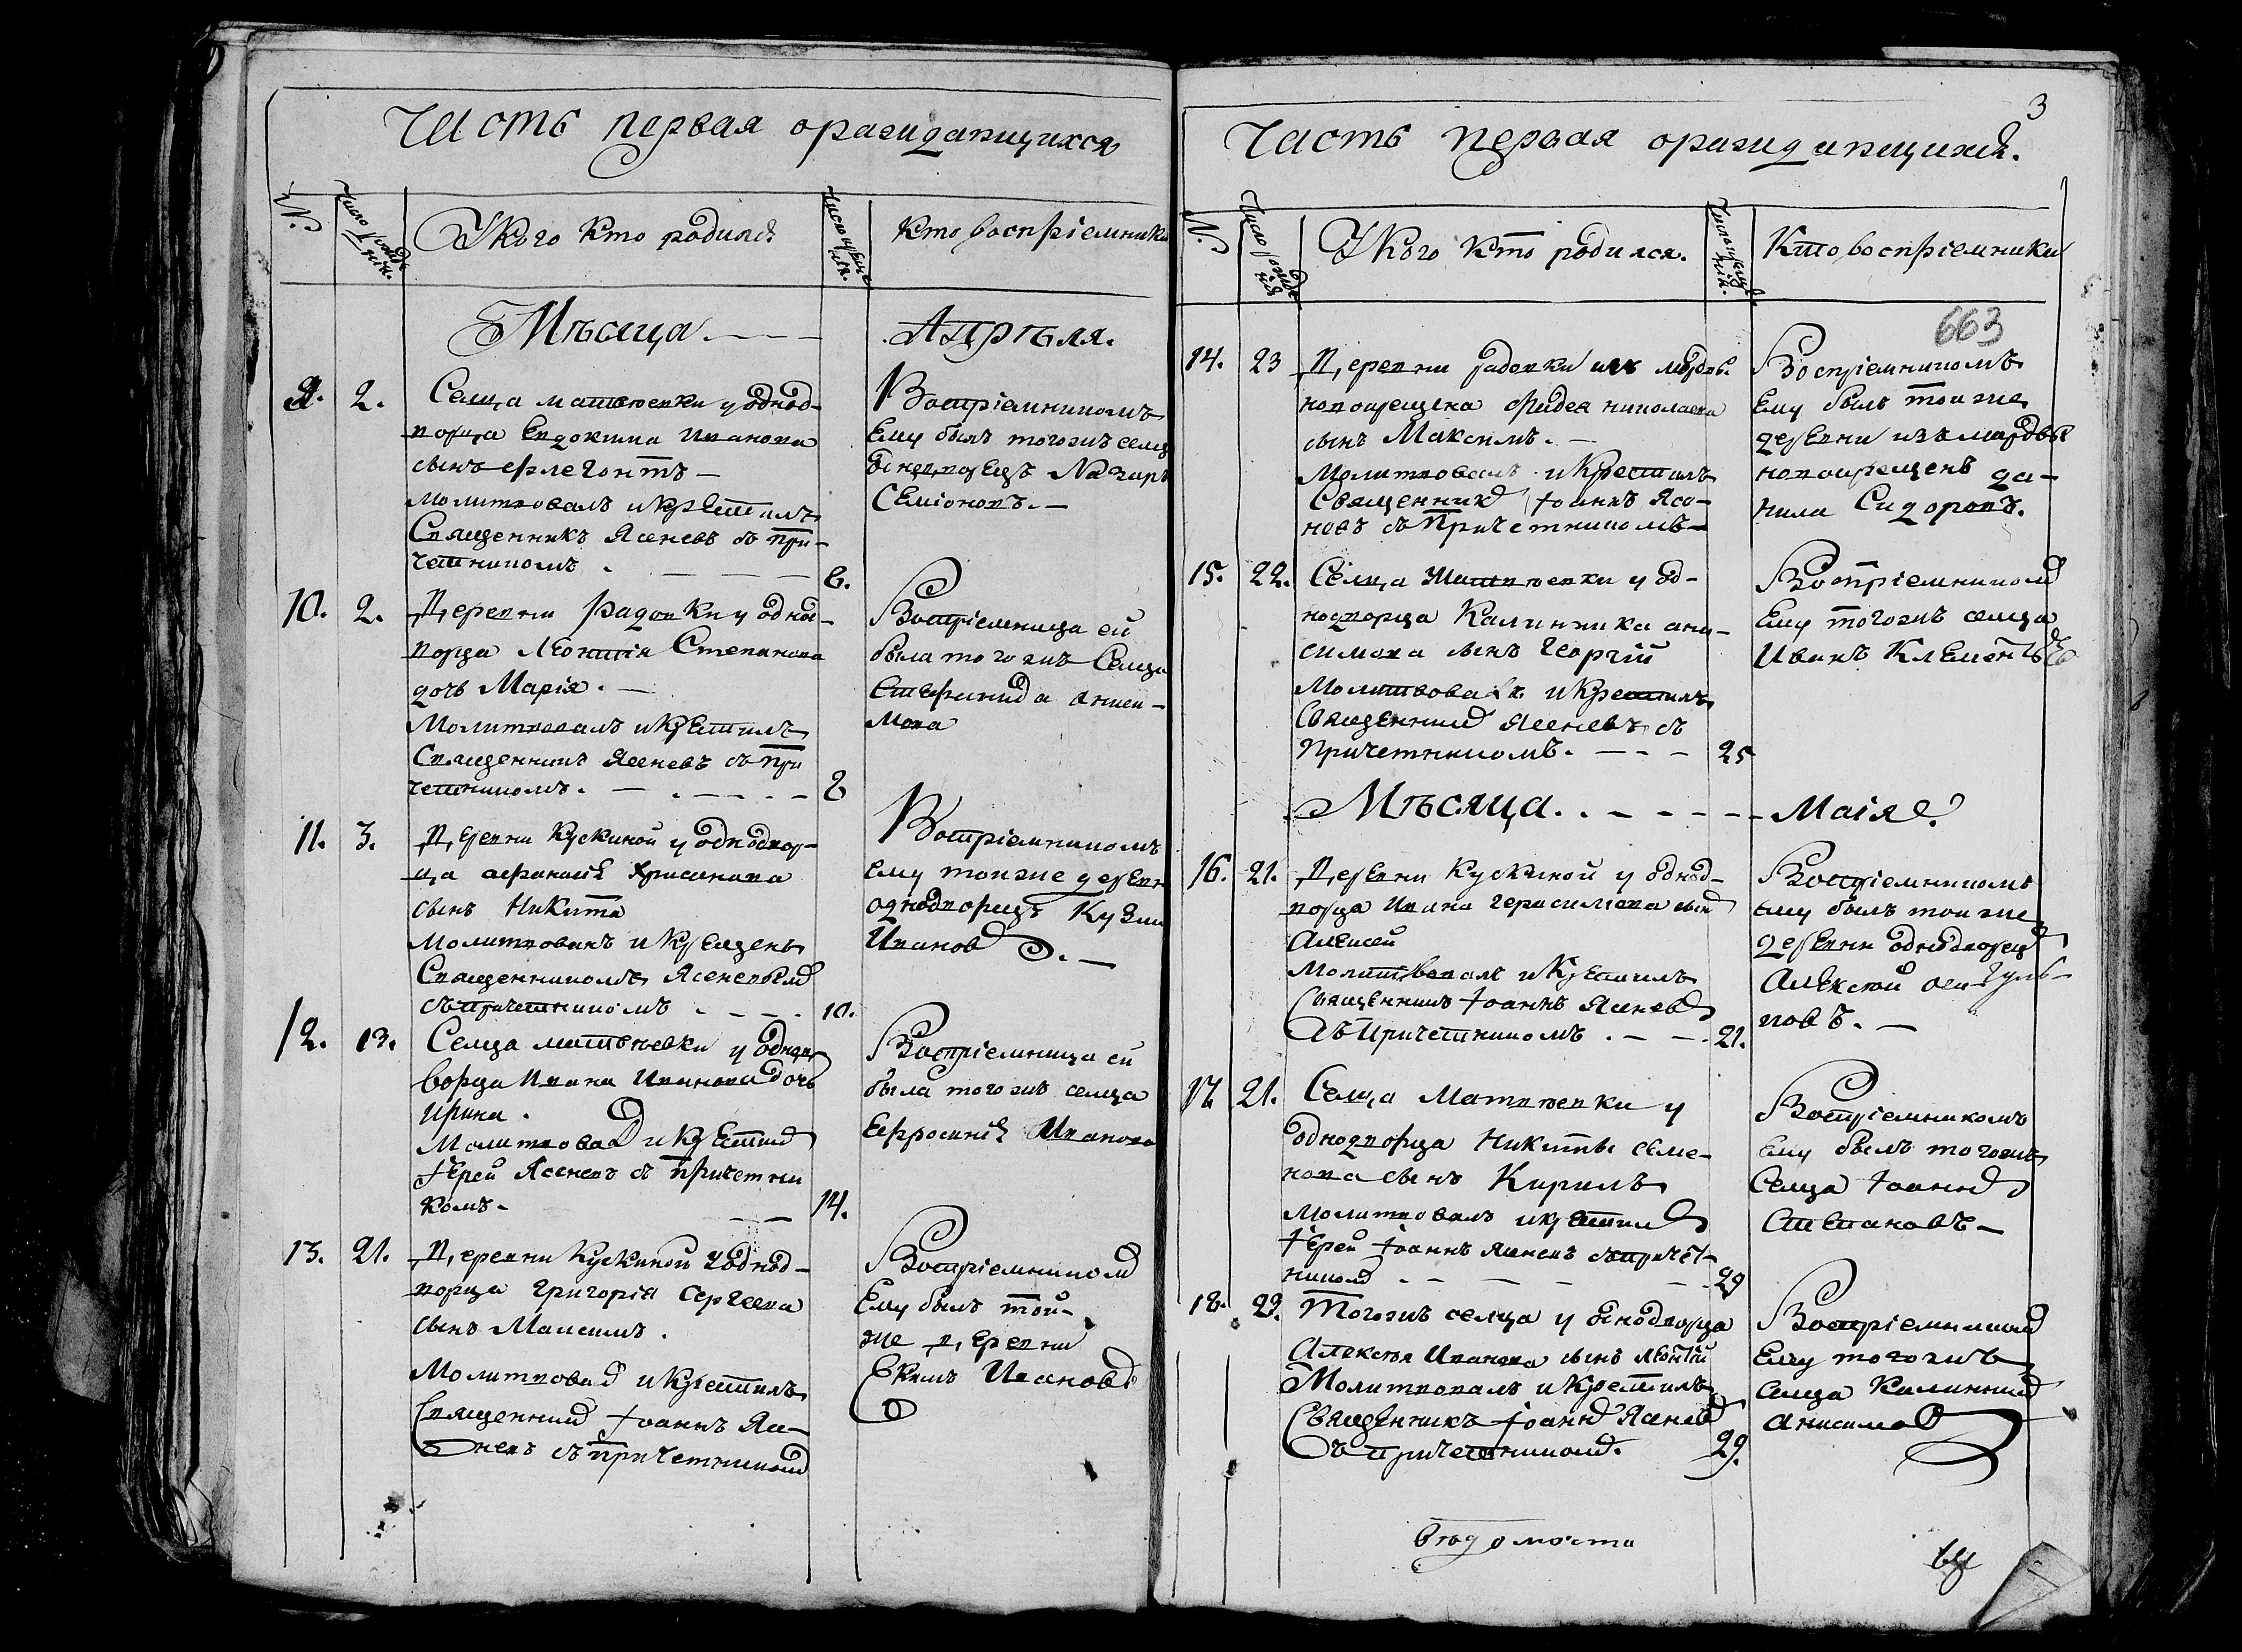 Часть первая ораждающихся
N.
Число рожде
нія.
У кого кто родился
Число креще
нія.
Кто воспріемники
Мѣсяца
Апрѣля.
9. 2.
Селца Матвѣевки у однод-
ворца Евдокима Иванова
сынъ Флегонтъ —
молитвовалъ и крестилъ
Священникъ Ясеневъ съ при-
четникомъ . — — — 6.
Воспріемникомъ
Ему былъ тогожъ селца
однодворецъ Назаръ
Семіоновъ. —
10. 2.
Деревни Радовки у однод-
ворца Леонтія Степанова
дочь Марія. —
Молитвовалъ и крестилъ
Священникъ Ясеневъ съ при
четникомъ. — . — . — . —
Воспріемница ей
была тогожъ Селца
Стефанида
11. 3.
Деревни Кускиной у однодвор-
ца Афанасія
сынъ Никита
молитвованъ и крещенъ
Священникомъ Ясеневымъ
съ причетникомъ . — — . 10.
Воспріемникомъ
ему тоя же деревни
однодворецъ Кузма
Иванов. —
12. 13.
Селца Матвѣевки у однод
ворца Ивана Иванова дочь
Ирина .
Молитвовал и крестил
Іерей Ясеневъ съ причетни
комъ. — — 14.
Воспріемница ей
была тогожъ селца
Ефросинія Иванова
13. 21.
Деревни Кускиной у однод-
ворца Григорія Сергеева
сынъ Максимъ .
Молитвовал и крестилъ
Священник Іоаннъ Ясе-
невъ съ причетником
Воспріемником
Ему былъ той-
же деревни
Екимъ Иванов
3
Часть первая ораждающихся.
N.
Число рожде
нія
У кого кто родился.
Число креще
нія.
Кто воспріемники
663
14. 23
Деревни Радовки изъ мордвы
новокрещена Фадея Николаева
сынъ Максимъ. —
Молитвовалъ и крестилъ
Священник Іоаннъ Ясе-
невъ съ Причетникомъ —
Воспріемникомъ
Ему былъ тоя же
деревни изъ мардвы
новокрещенъ Да-
нила Сидоровъ.
15. 22.
Селца Матвѣевки у од-
нодворца Калинника Ани-
симова сынъ Георгій
Молитвовалъ и крестилъ
Священник Ясеневъ съ
Причетникомъ. — — — 25
Воспріемником
Ему тогожъ селца
Иванъ Клементьев
Мѣсяца. . — — — — Маія.
16. 21.
Деревни Кускиной у однод-
ворца Ивана Герасимова сын
Алексей
Молитвовалъ и крестилъ
Священникъ Іоаннъ Ясенев
съ Причетникомъ . — — . 21.
Воспріемникомъ
ему былъ тоя же
деревни однодворец
Алексей
новъ. —
17. 21.
Селца Матвѣевки у
однодворца Никиты Семе-
нова сынъ Кирилъ
молитвовалъ и крестил
Іерей Іоаннъ Ясеневъ съ причет-
ником — — — — 29
Воспріемникомъ
Ему былъ тогожъ
Селца Іоанн
Степановъ —
18. 29.
Тогожъ селца у однодворца
Алексѣя Иванова сынъ Леонтій
Молитвовалъ и крестилъ
Священникъ Іоанн Ясенев
съ причетником. 29.
Воспріемником
Ему тогожъ
селца Калинник
Анисимов
Вѣдомости